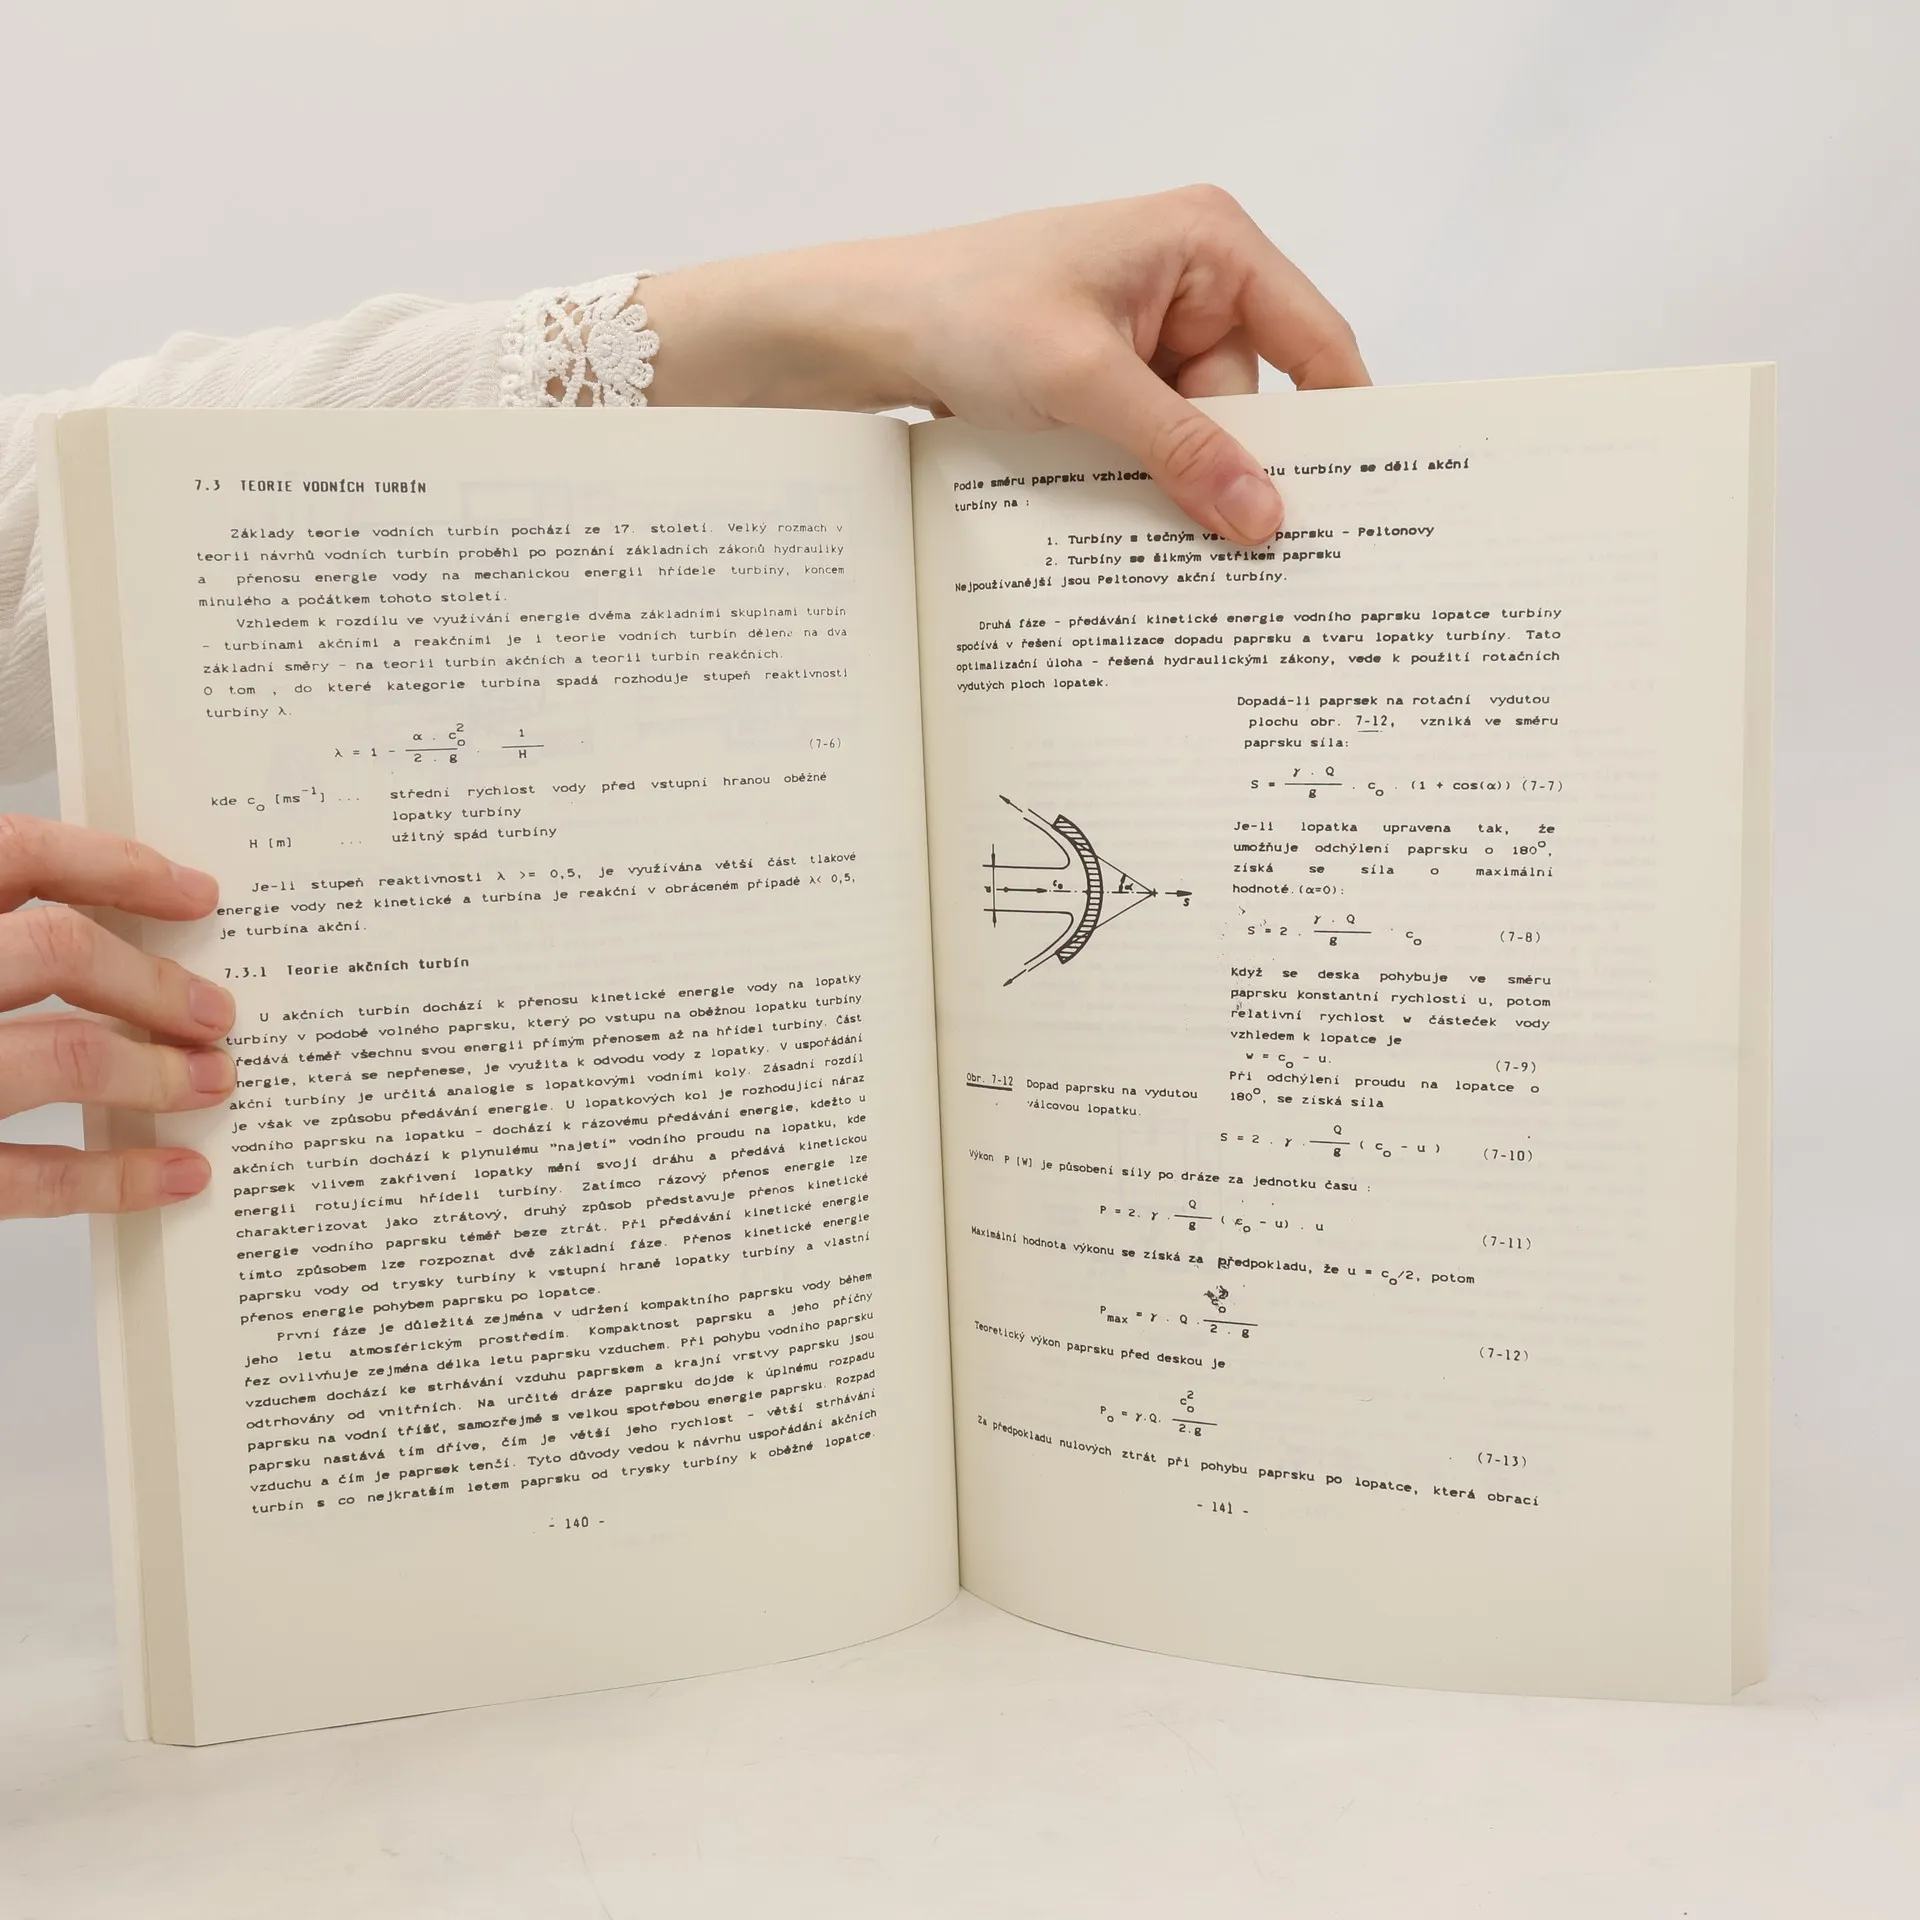 7.3 TEORIE VODNÍCH TURBÍN
Základy teorie vodních turbín pochází ze 17. století. Velký rozmach v
teorii návrhů vodních turbín proběhl po poznání základních zákonů hydrauliky
a přenosu energie vody na mechanickou energii hřídele turbíny, koncem
minulého a počátkem tohoto století.
Vzhledem k rozdílu ve využívání energie dvěma základními skupinami turbín
- turbínami akčními a reakčními je i teorie vodních turbín dělena na dva
základní směry - na teorii turbín akčních a teorii turbín reakčních.
O tom , do které kategorie turbína spadá rozhoduje stupeň reaktivnosti
turbíny λ.
λ = 1 - α . c₀² / 2 . g . 1 / H (7-6)
kde c₀ [ms⁻¹] ... střední rychlost vody před vstupní hranou oběžné
lopatky turbíny
H [m] ... užitný spád turbíny
Je-li stupeň reaktivnosti λ >= 0,5, je využívána větší část tlakové
energie vody než kinetické a turbína je reakční v obráceném případě λ< 0,5,
je turbína akční.
7.3.1 Teorie akčních turbín
U akčních turbín dochází k přenosu kinetické energie vody na lopatky
turbíny v podobě volného paprsku, který po vstupu na oběžnou lopatku turbíny
ředává téměř všechnu svou energii přímým přenosem až na hřídel turbíny. Část
nergie, která se nepřenese, je využita k odvodu vody z lopatky. V uspořádání
akční turbíny je určitá analogie s lopatkovými vodními koly. Zásadní rozdíl
je však ve způsobu předávání energie. U lopatkových kol je rozhodující náraz
vodního paprsku na lopatku - dochází k rázovému předávání energie, kdežto u
akčních turbín dochází k plynulému "najetí" vodního proudu na lopatku, kde
paprsek vlivem zakřivení lopatky mění svojí dráhu a předává kinetickou
energii rotujícímu hřídeli turbíny. Zatímco rázový přenos energie lze
charakterizovat jako ztrátový, druhý způsob představuje přenos kinetické
energie vodního paprsku téměř beze ztrát. Při předávání kinetické energie
tímto způsobem lze rozpoznat dvě základní fáze. Přenos kinetické energie
paprsku vody od trysky turbíny k vstupní hraně lopatky turbíny a vlastní
přenos energie pohybem paprsku po lopatce.
První fáze je důležitá zejména v udržení kompaktního paprsku vody během
jeho letu atmosférickým prostředím. Kompaktnost paprsku a jeho příčný
řez ovlivňuje zejména délka letu paprsku vzduchem. Při pohybu vodního paprsku
vzduchem dochází ke strhávání vzduhu paprskem a krajní vrstvy paprsku jsou
odtrhovány od vnitřních. Na určité dráze paprsku dojde k úplnému rozpadu
paprsku na vodní tříšť, samozřejmě s velkou spotřebou energie paprsku. Rozpad
paprsku nastává tím dříve, čím je větší jeho rychlost - větší strhávání
vzduchu a čím je paprsek tenčí. Tyto důvody vedou k návrhu uspořádání akčních
turbín s co nejkratším letem paprsku od trysky turbíny k oběžné lopatce.
- 140 -
Podle směru paprsku vzhledem olu turbíny se dělí akční
turbíny na :
1. Turbíny s tečným paprsku - Peltonovy
2. Turbíny se šikmým vstřikem paprsku
Nejpoužívanější jsou Peltonovy akční turbíny.
Druhá fáze - předávání kinetické energie vodního paprsku lopatce turbíny
spočívá v řešení optimalizace dopadu paprsku a tvaru lopatky turbíny. Tato
optimalizační úloha - řešená hydraulickými zákony, vede k použití rotačních
vydutých ploch lopatek.
Dopadá-li paprsek na rotační vydutou
plochu obr. 7-12, vzniká ve směru
paprsku síla:
S = γ . Q / g . c₀ . (1 + cos(α)) (7-7)
Je-li lopatka upravena tak, že
umožňuje odchýlení paprsku o 180°,
získá se síla o maximální
hodnotě.(α=0):
S = 2 . γ . Q / g . c₀ (7-8)
Když se deska pohybuje ve směru
paprsku konstantní rychlostí u, potom
relativní rychlost w částeček vody
vzhledem k lopatce je
w = c₀ - u. (7-9)
Při odchýlení proudu na lopatce o
180°, se získá síla
c₀ α S
Obr. 7-12 Dopad paprsku na vydutou
válcovou lopatku.
S = 2 . γ . Q / g ( c₀ - u ) (7-10)
Výkon P [W] je působení síly po dráze za jednotku času :
P = 2. γ . Q / g ( c₀ - u) . u (7-11)
Maximální hodnota výkonu se získá za předpokladu, že u = c₀/2, potom
Pmax = γ . Q . c₀² / 2 . g (7-12)
Teoretický výkon paprsku před deskou je
P₀ = γ.Q. c₀² / 2.g (7-13)
Za předpokladu nulových ztrát při pohybu paprsku po lopatce, která obrací
- 141 -